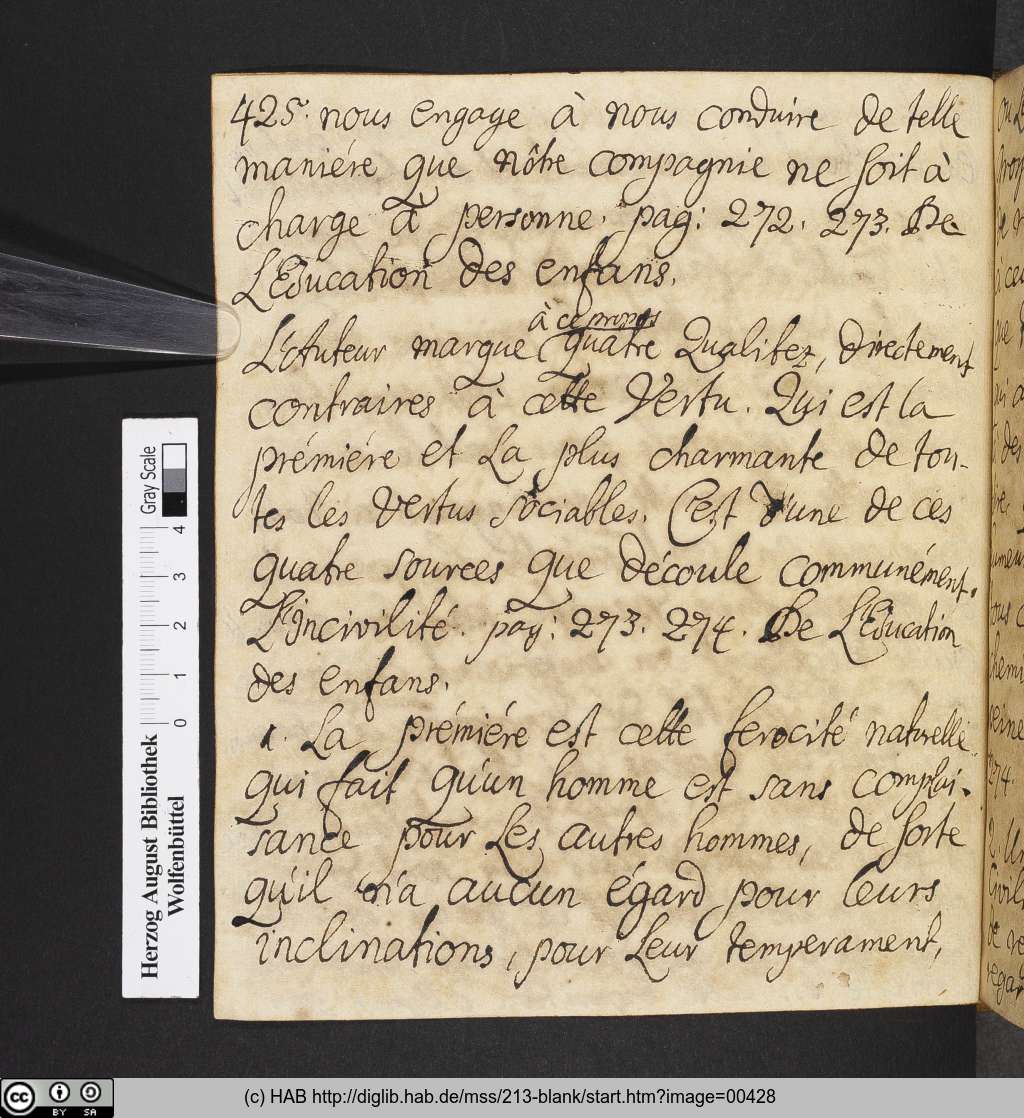 425. nous engage à nous conduire de telle
maniére que nôtre compagnie ne soit à
charge à personne. pag: 272. 273. De
L'Education des enfans.
à ce propos
L'Auteur marque quatre Qualitez, directement
contraires à cette Vertu. Qui est la
prémiére et La plus charmante de tou-
tes les vertus sociables. C'est d'une de ces
quatre sources que découle communément
L'incivilité. pag: 273. 274. De L'Education
des enfans.
1. La prémiére est cette ferocité naturelle
qui fait qu'un homme est sans complai-
sance pour Les autres hommes, de sorte
qu'il n'a aucun égard pour leurs
inclinations, pour Leur temperament,
274.
Gray Scale
0 1 2 3 4
Herzog August Bibliothek
Wolfenbüttel
cc BY SA
(c) HAB http://diglib.hab.de/mss/213-blank/start.htm?image=00428